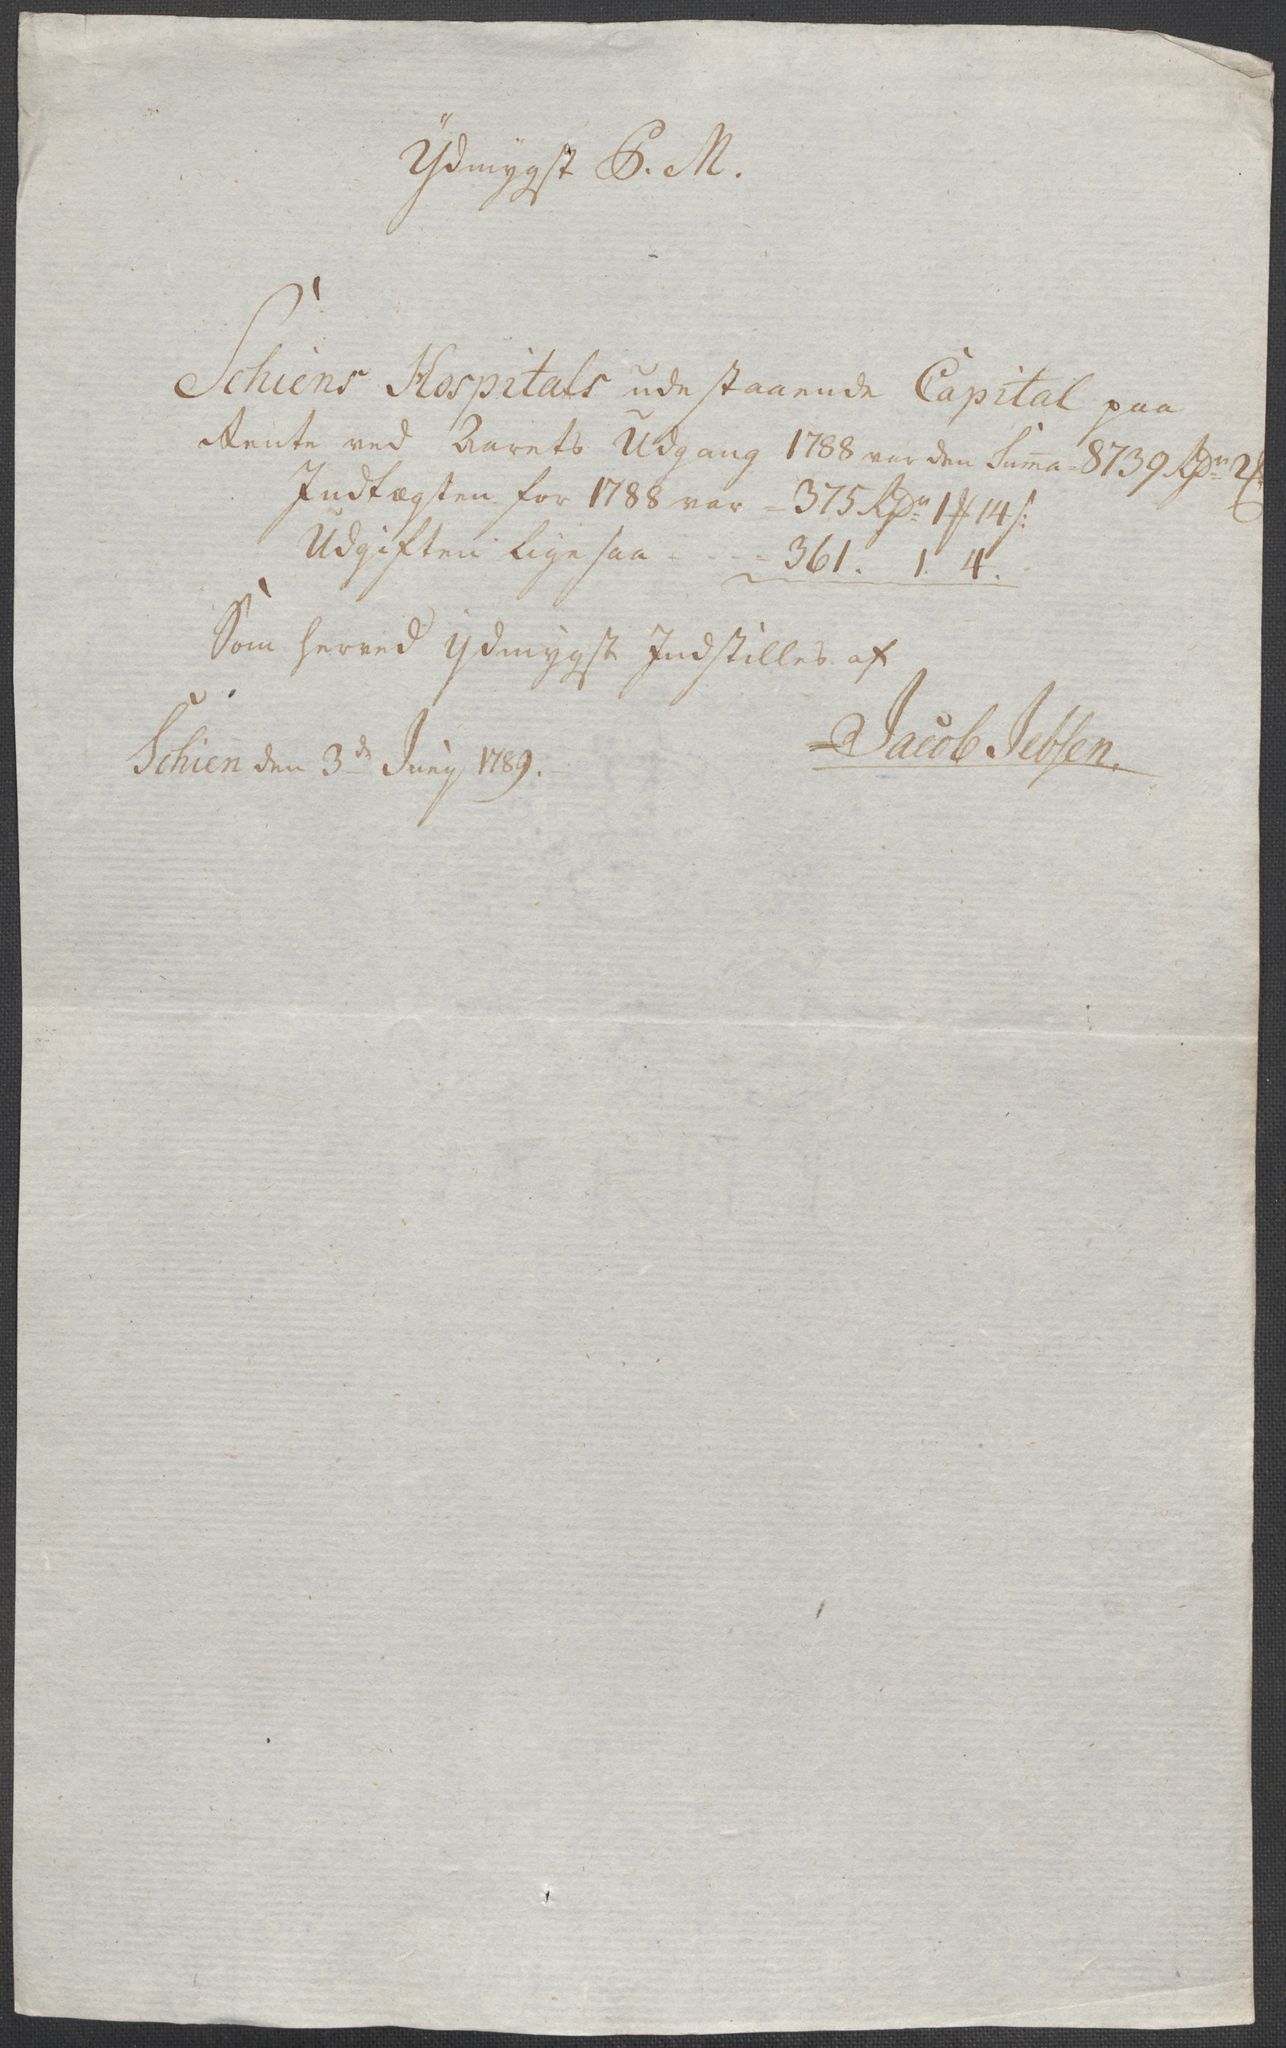 Ydmygst P. M.
Schiens Hospitals udestaaende Capital paa
Rente ved Aarets Udgang 1788 var den Suma = 8739 Rdr 2
Indtægten for 1788 var = 375 Rdr 1 # 14 s:
Udgiften ligesaa - - - - 361. 1. 4.
Som herved ydmygst Indstilles af
Jacob Jebsen.
Schien den 3de Juny 1789.